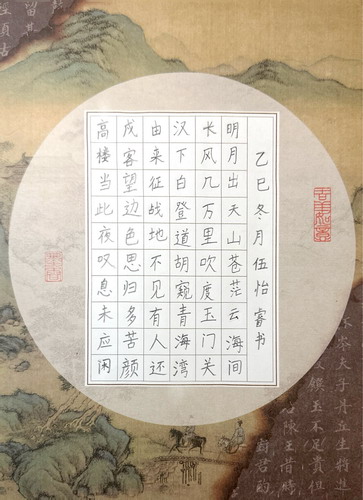 乙巳冬月伍怡睿书
明月出天山苍茫云海间
长风几万里吹度玉门关
汉下白登道胡窥青海湾
由来征战地不见有人还
戍客望边色思归多苦颜
高楼当此夜叹息未应闲